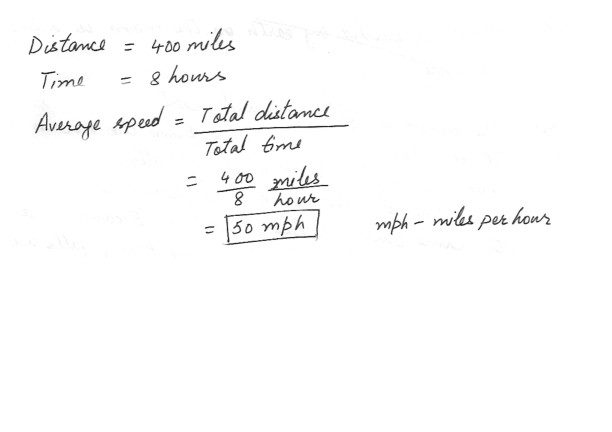 Distance = 400 miles
Time = 8 hours
Average speed = Total distance
Total time
= 400 miles
8 hour
= 50 mph mph - miles per hour